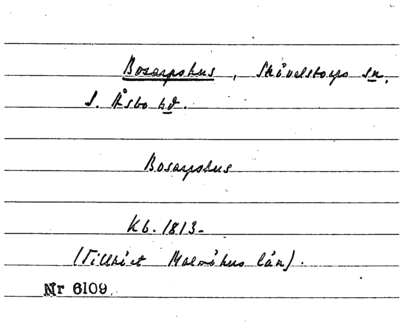 Bosarpshus, Skävelstorps sn.
S. Åsbo hd.
Bosarpshus
Kb. 1813-
(Tillhört Malmöhus län).
Nr 6109.